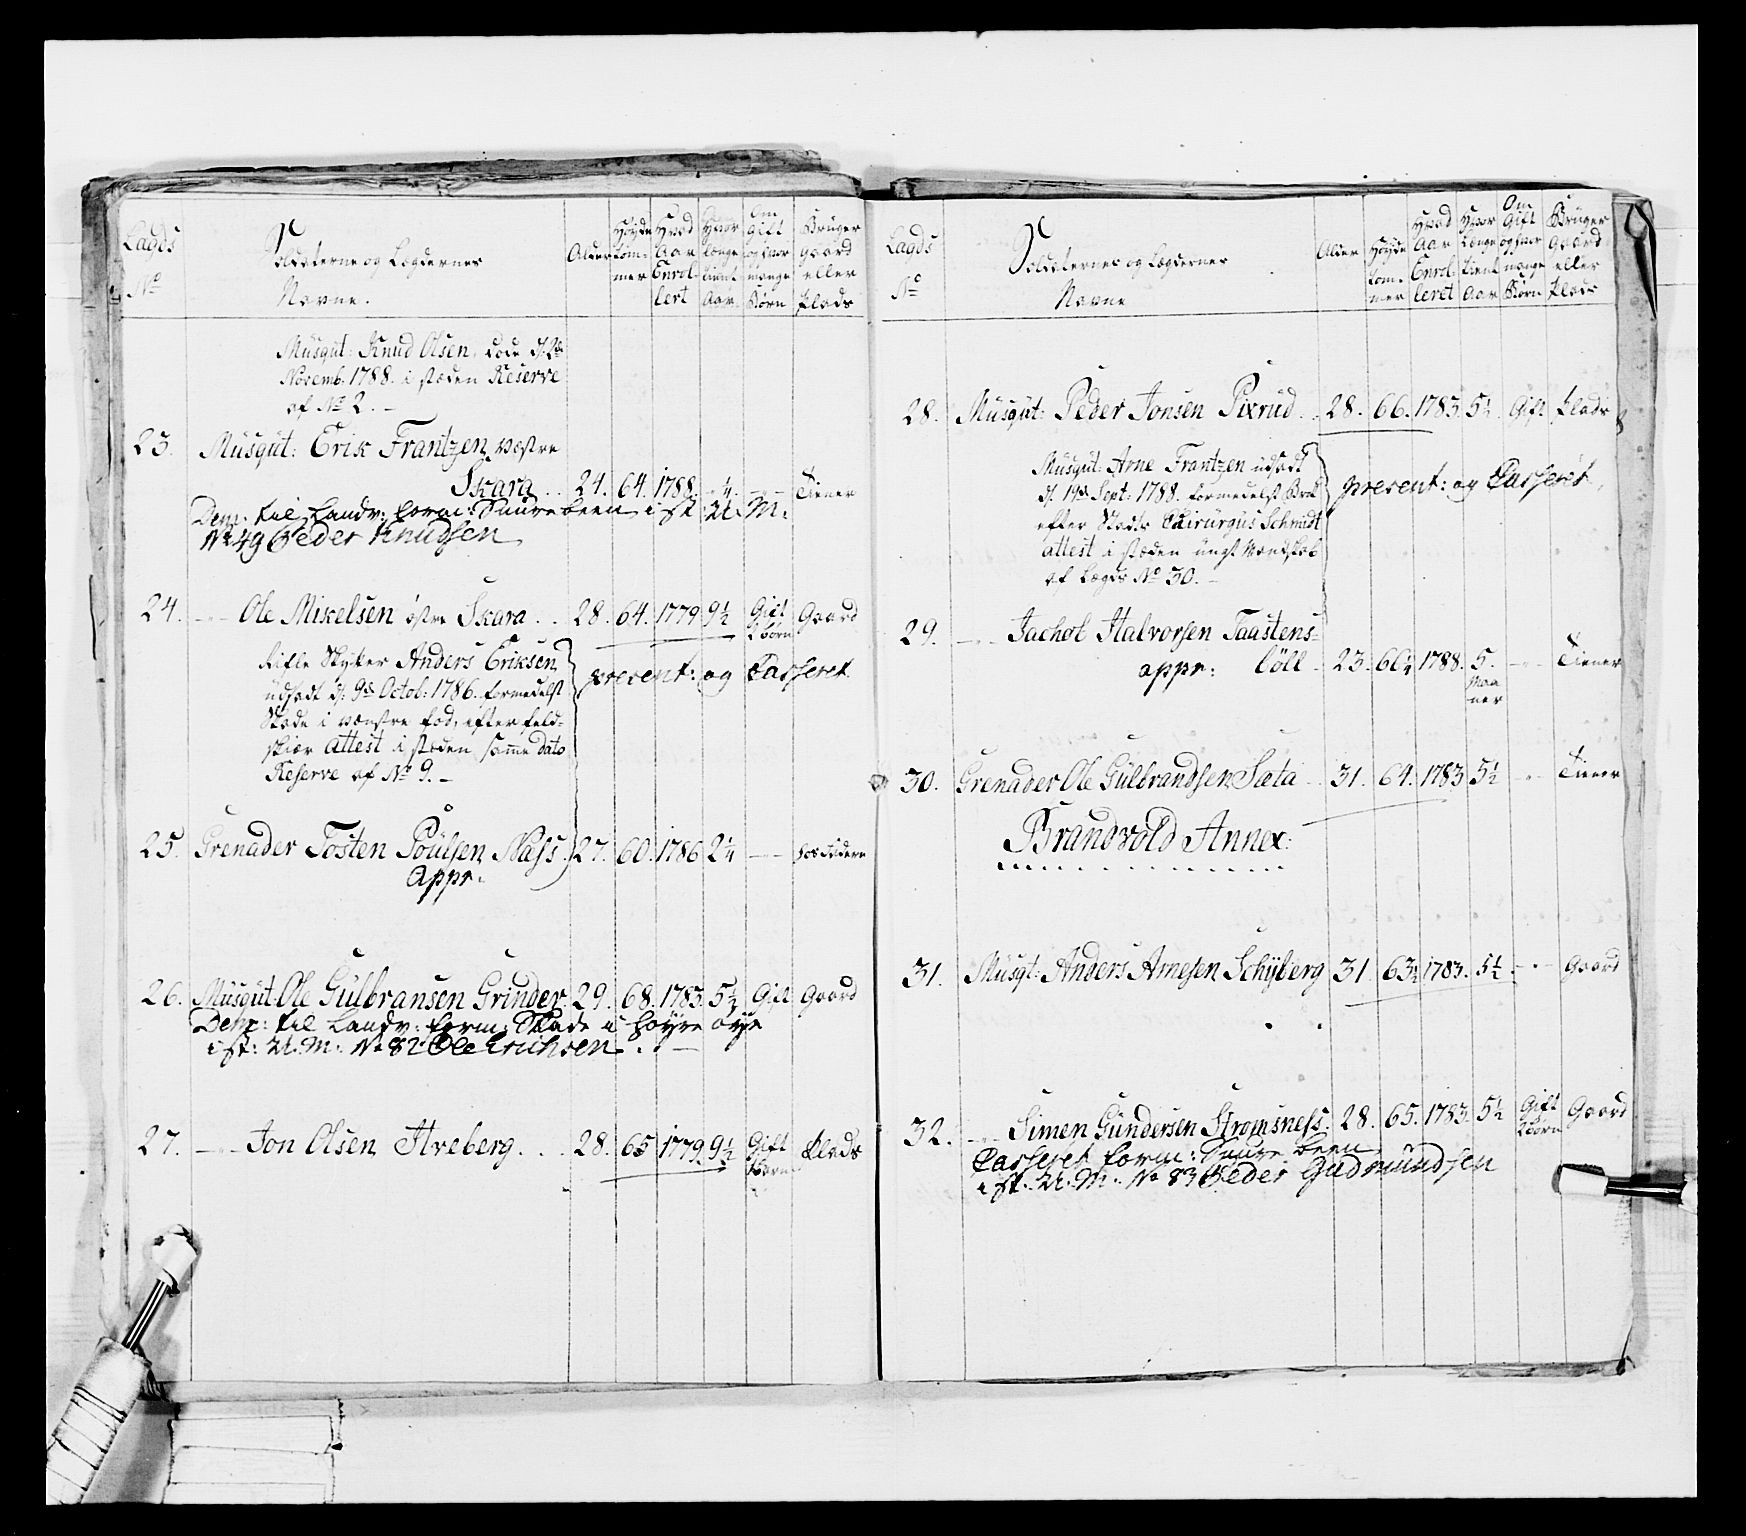 Lagds
No
Soldaterne og Lægdernes
Navne.
Alder
Høyde
tom-
mer
Hvad
Aar
Enrol-
lert
Hvor
længe
tient
Aar
Om
Gift
og hvor
mange
Børn
Bruger
Gaard
eller
Plads
Musqut: Knud Olsen, døde d. 2de
Novemb: 1788. i stæden Reserve
af No 2. –
23. Musqut: Erik Frantzen, Væstre
Skara . . 24. 64. 1788. - ¼. - - Tiener
Dem: til Landv: form: Saure been i st: U: M:
No 49 Peder Knudsen
24. - - Ole Mikelsen østre Skara . . 28. 64. 1779 9½ Gift Gaard
2 Børn
Rifle Skytter Anders Eriksen
udsadt d. 9de Octob: 1786. formedelst
Skade i vænstre fod, efter feld-
skiær attest i stæden samme dato
Reserve af No 9. –
present: og Casseret
25. Grenader Tosten Poulsen Næss. 27. 60. 1786 2¼ - - hos Fadern
appr:
26. Musqut: Ole Gulbransen Grinder. 29. 68. 1783. 5½ Gift Gaard
Dem: til Landv: form: Skade i høyre øye
i st: U: M: No 82 Ole Erichsen . . –
27. - - Jon Olsen Hveberg. . . 28. 65 1779. 9½ Gift Plads
Børn
Lagds
No
Soldaternes og Lægdernes
Navne
Alder
Høyde
tom-
mer
Hvad
Aar
Enrol-
leret
Hvor
længe
tient
Aar
Om
Gift
og hvor
mange
Børn
Bruger
Gaard
eller
Plads
28. Musqut: Peder Jonsen Pixrud . . 28. 66. 1783. 5½. Gift Plads
Musqut: Arne Frantzen udsadt
d. 19de Sept: 1788. formedelst Brok
efter Stads Chirurgus Schmidt
attest i stæden ungt Mandskab
af Lægds No 30. –
present: og Casseret,
29. - - Jachob Halvorsen Taastens-
appr: bøll - 23. 66½ 1788. 5. - - Tiener
Maa
ner
30. Grenader Ole Gulbrandsen Sæta . . 31. 64. 1783 5½ - - Tiener
Brandvold Annex:
31. Musqt: Anders Arnesen Schyberg 31 63½ 1783. 5½ - - Gaard
32. - - Simen Gundersen Strømsness. 28. 65. 1783 5½ Gift Gaard
2 Børn
Casseret form: Saure been
i st: U: M: No 83 Peder Gudmundsen